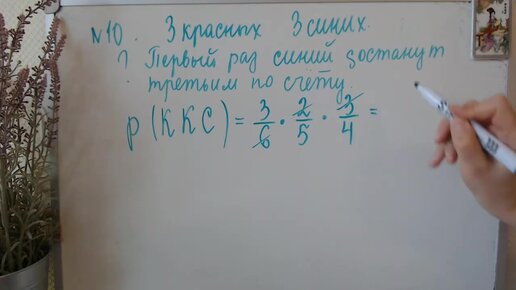 №10. 3 красных 3 синих.
? Первый раз синий достанут
третьим по счёту.
P(ККС) = 3/6 · 2/5 · 3/4 =